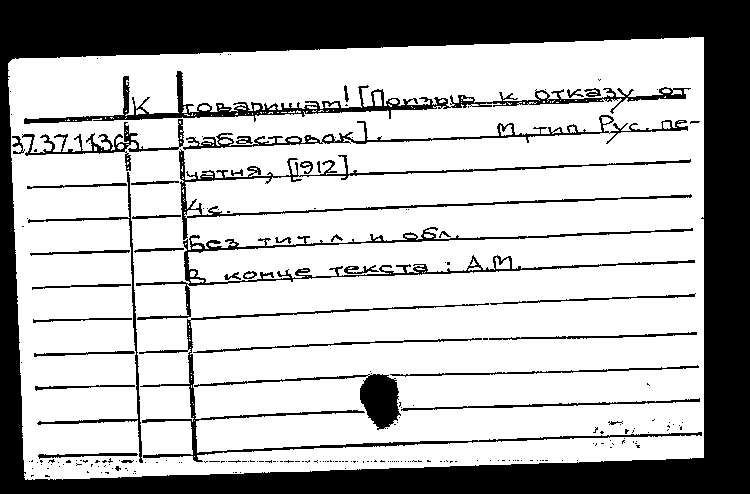 К товарищам! [Призыв к отказу от
37.37.11.365. забастовок]. М., тип. Рус. пе-
чатня, [1912].
4с.
Без тит. л. и обл.
В конце текста : А.М.